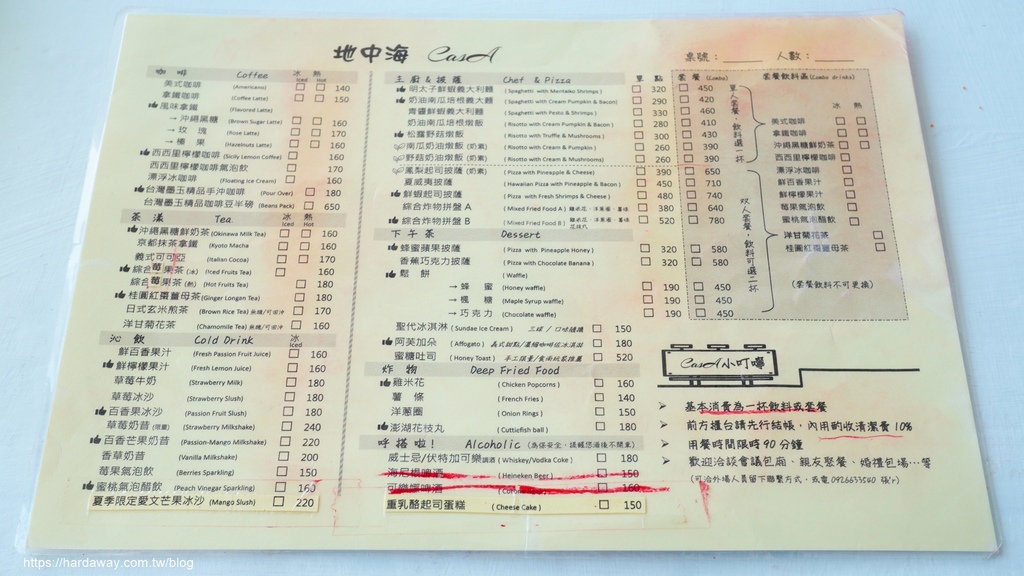 地中海 CasA
桌號：______ 人數：______
咖啡 Coffee 冰 Iced 熱 Hot
美式咖啡 (Americano) 140
拿鐵咖啡 (Coffee Latte) 150
風味拿鐵 (Flavored Latte)
→沖繩黑糖 (Brown Sugar Latte) 160
→玫瑰 (Rose Latte) 170
→榛果 (Hazelnuts Latte) 160
西西里檸檬咖啡 (Sicily Lemon Coffee) 160
西西里檸檬咖啡氣泡飲 170
漂浮冰咖啡 (Floating Ice Cream) 160
台灣墨玉精品手沖咖啡 (Pour Over) 180
台灣墨玉精品咖啡豆半磅 (Beans Pack) 650
茶漾 Tea 冰 Iced 熱 Hot
沖繩黑糖鮮奶茶 (Okinawa Milk Tea) 160
京都抹茶拿鐵 (Kyoto Macha) 160
義式可可亞 (Italian Cocoa) 170
綜合莓果茶 (冰) (Iced Fruits Tea) 160
綜合莓果茶 (熱) (Hot Fruits Tea) 180
桂圓紅棗薑母茶 (Ginger Longan Tea) 180
日式玄米煎茶 (Brown Rice Tea) 無糖/可回沖 160
洋甘菊花茶 (Chamomile Tea) 無糖/可回沖 160
沁飲 Cold Drink 冰 Iced
鮮百香果汁 (Fresh Passion Fruit Juice) 160
鮮檸檬果汁 (Fresh Lemon Juice) 160
草莓牛奶 (Strawberry Milk) 180
草莓冰沙 (Strawberry Slush) 180
百香果冰沙 (Passion Fruit Slush) 180
草莓奶昔 (限量) (Strawberry Milkshake) 240
百香芒果奶昔 (Passion-Mango Milkshake) 220
香草奶昔 (Vanilla Milkshake) 200
莓果氣泡飲 (Berries Sparkling) 150
蜜桃氣泡醋飲 (Peach Vinegar Sparkling) 160
夏季限定愛文芒果冰沙 (Mango Slush) 220
主廚&披薩 Chef & Pizza 單點 套餐 (Combo)
明太子鮮蝦義大利麵 (Spaghetti with Mentaiko Shrimps) 320 450
奶油南瓜培根義大麵 (Spaghetti with Cream Pumpkin & Bacon) 290 420
青醬鮮蝦義大利麵 (Spaghetti with Pesto & Shrimps) 330 460
奶油南瓜培根燉飯 (Risotto with Cream Pumpkin & Bacon) 280 410
松露野菇燉飯 (Risotto with Truffle & Mushrooms) 300 430
南瓜奶油燉飯 (奶素) (Risotto with Cream & Pumpkin) 260 390
野菇奶油燉飯 (奶素) (Risotto with Cream & Mushrooms) 260 390
鳳梨起司披薩 (奶素) (Pizza with Pineapple & Cheese) 390 650
夏威夷披薩 (Hawaiian Pizza with Pineapple & Bacon) 450 710
鮮蝦起司披薩 (Pizza with Fresh Shrimps & Cheese) 480 740
綜合炸物拼盤 A (Mixed Fried Food A) 380 640
綜合炸物拼盤 B (Mixed Fried Food B) 520 780
下午茶 Dessert
蜂蜜蘋果披薩 (Pizza with Pineapple Honey) 320 580
香蕉巧克力披薩 (Pizza with Chocolate Banana) 320 580
鬆餅 (Waffle)
→蜂蜜 (Honey waffle) 190 450
→楓糖 (Maple Syrup waffle) 190 450
→巧克力 (Chocolate waffle) 190 450
聖代冰淇淋 (Sundae Ice Cream) 三球/口味隨機 150
阿芙加朵 (Affogato) 義式甜點/濃縮咖啡佐冰淇淋 180
蜜糖吐司 (Honey Toast) 手工限量/食尚玩家推薦 520
炸物 Deep Fried Food
雞米花 (Chicken Popcorns) 160
薯條 (French Fries) 140
洋蔥圈 (Onion Rings) 150
澎湖花枝丸 (Cuttlefish ball) 180
呼搭啦! Alcoholic (為保安全，提醒您酒後不開車)
威士忌/伏特加可樂調酒 (Whiskey/Vodka Coke) 180
海尼根啤酒 (Heineken Beer) 150
可樂娜啤酒 160
重乳酪起司蛋糕 (Cheese Cake) 150
單人套餐，飲料選一杯
双人套餐，飲料可選二杯
套餐飲料區 (Combo drinks)
冰 熱
美式咖啡
拿鐵咖啡
沖繩黑糖鮮奶茶
西西里檸檬咖啡
漂浮冰咖啡
鮮百香果汁
鮮檸檬果汁
莓果氣泡飲
蜜桃氣泡醋飲
洋甘菊花茶
桂圓紅棗薑母茶
(套餐飲料不可更換)
CasA小叮嚀
➢ 基本消費為一杯飲料或套餐
➢ 前方櫃台請先行結帳，內用酌收清潔費 10%
➢ 用餐時間限時 90 分鐘
➢ 歡迎洽談會議包廂、親友聚餐、婚禮包場…等
(可洽外場人員留下聯繫方式，或電 0926633540 張'r)
https://hardaway.com.tw/blog